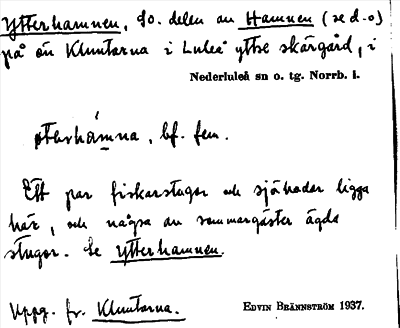 Ytterhamnen,SO. delen av Hamnen (se d.o)
på ön Kluntarna i Luleå yttre skärgård, i
Nederluleå sn o. tg. Norrb. l.
yterhámna, bf. fem.
Ett par fiskarstugor och sjöbodar ligga
här, och några av sommargäster ägda
stugor. Se Ytterhamnen.
Uppg. fr. Kluntarna.
EDVIN BRÄNNSTRÖM 1937.